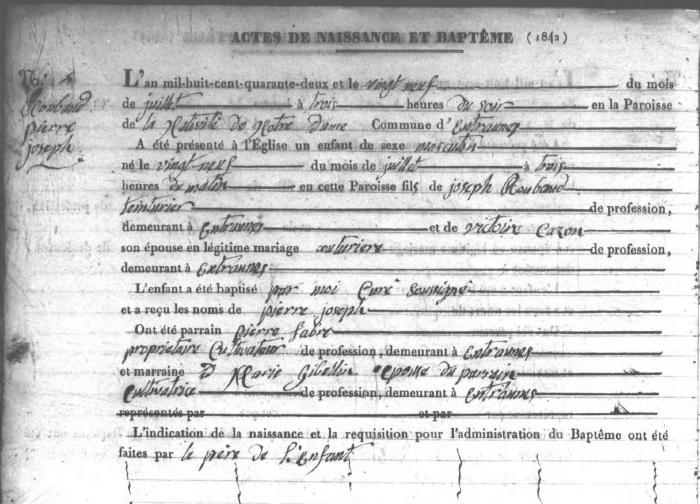 ACTES DE NAISSANCE ET BAPTÊME (1842)
L'an mil-huit-cent-quarante-deux et le vingt neuf du mois
Roubaud
pierre
joseph
de juillet à trois heures du soir en la Paroisse
de la Nativité de Notre Dame Commune d'Entraunes
A été présenté à l'Eglise un enfant de sexe masculin
né le vingt neuf du mois de juillet à trois
heures du matin en cette Paroisse fils de joseph Roubaud
teinturier de profession,
demeurant à Entraunes et de victoire Cazon
son épouse en légitime mariage couturiere de profession,
demeurant à Entraunes
L'enfant a été baptisé par moi Curé Soussigné
et a reçu les noms de pierre joseph
Ont été parrain pierre fabre
propriétaire Cultivateur de profession, demeurant à Entraunes
et marraine D Marie Gibellin epouse du parrain
Cultivatrice de profession, demeurant à Entraunes
représentés par et par
L'indication de la naissance et la requisition pour l'administration du Baptême ont été
faites par le père de l'Enfant